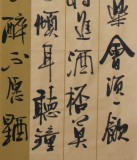 樂會須一飲
將進酒杯莫
傾耳聽鐘
醉不愿醒